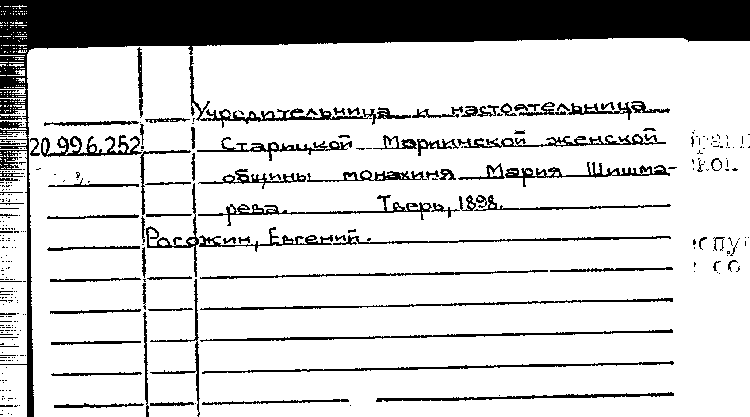 Учредительница и настоятельница
20.996.252 Старицкой Мариинской женской
общины монахиня Мария Шишма-
рева. Тверь, 1898.
Рагожин, Евгений.